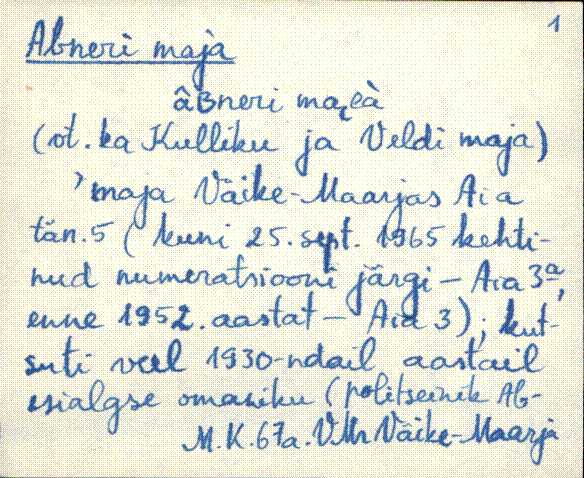 1
Abneri maja
âʙneri mai̯eà
(vt. ka Kulliku ja Veldi maja)
’maja Väike-Maarjas Aia
tän. 5 (kuni 25. sept. 1965 kehti-
nud numeratsiooni järgi – Aia 3ª,
enne 1952. aastat – Aia 3); kut-
suti veel 1930-ndail aastail
esialgse omaniku (politseinik Ab-
M.K. 67a. VMr Väike-Maarja